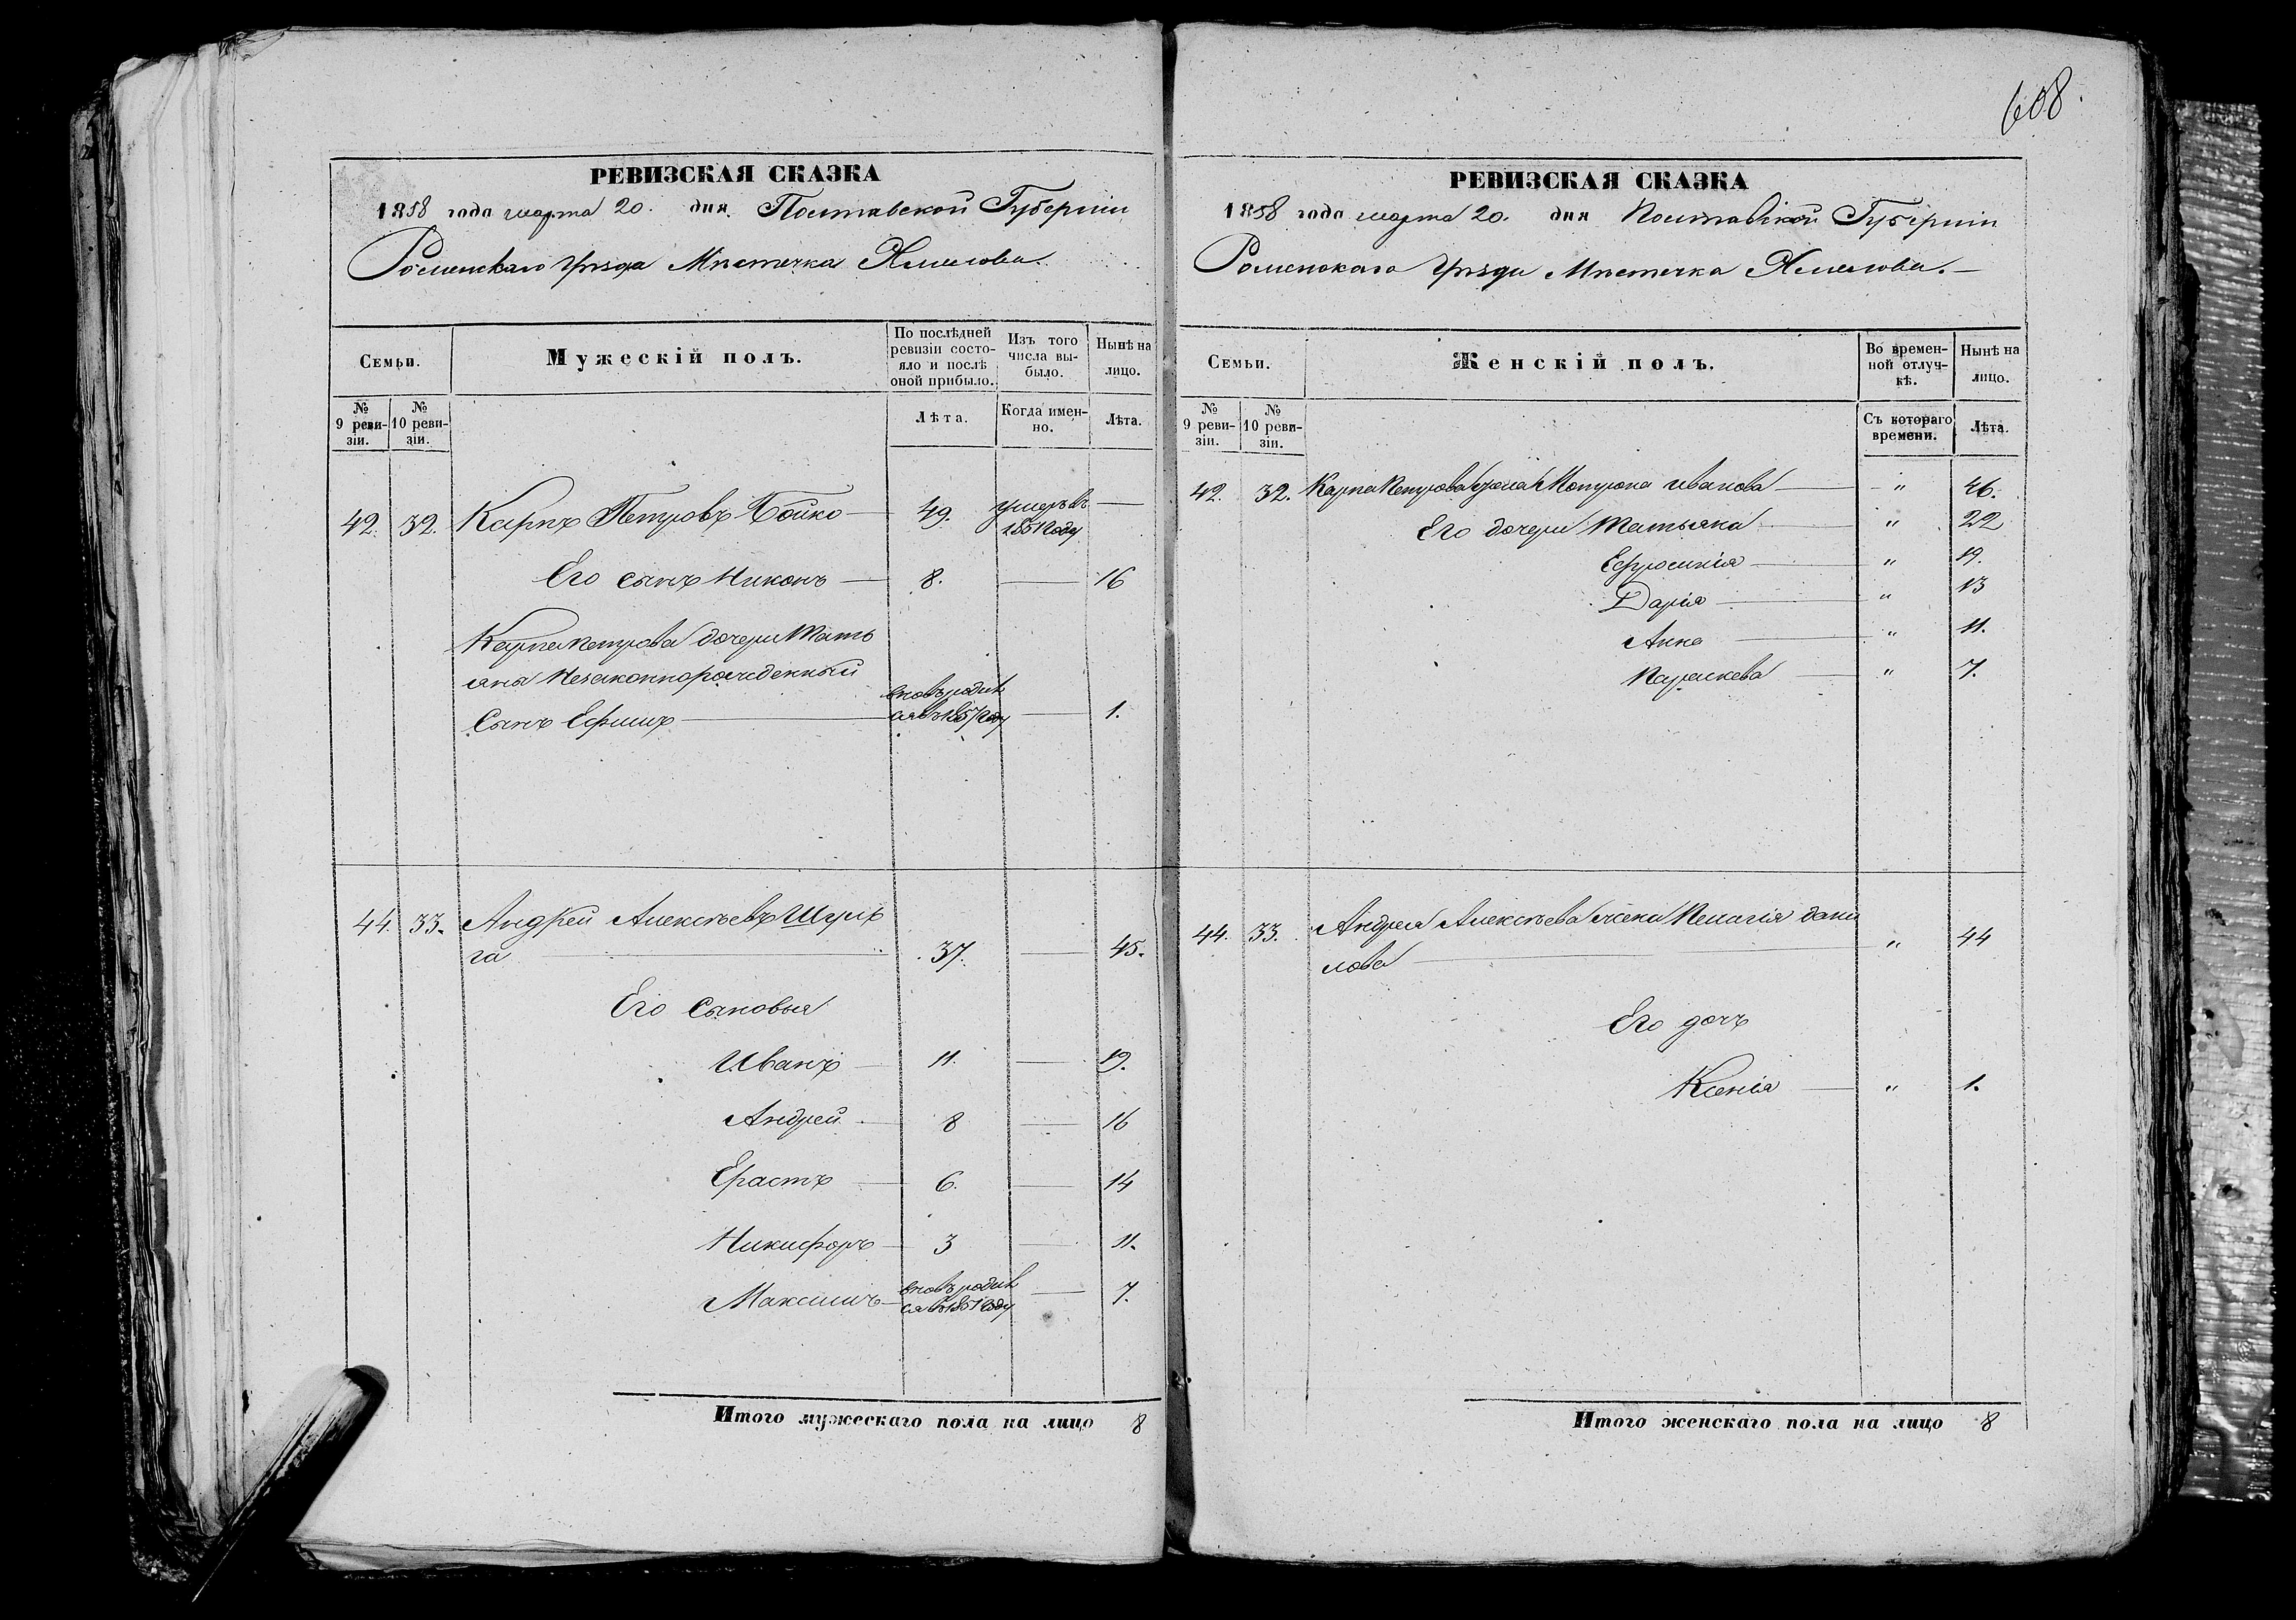 608
РЕВИЗСКАЯ СКАЗКА
1858 года марта 20. дня Полтавской Губерніи
Роменскаго Уѣзда Мѣстечка Хмелова.
Семьи.
Мужескій полъ.
По послѣдней ревизіи состояло и послѣ оной прибыло.
Изъ того числа выбыло.
Нынѣ на лицо.
№ 9 ревизіи.
№ 10 ревизіи.
Лѣта.
Когда именно.
Лѣта.
42. 32. Карпъ Петровъ Бойко 49. умеръ въ 1851 году
Его сынъ Никонъ 8. 16
Карпа Петрова дочери Тать
яны Незаконнорожденный
Сынъ Ефимъ вновь родил ся въ 1857 году 1.
44. 33. Андрей Алексѣевъ Шуль
га 37. 45.
Его Сыновья
Иванъ 11. 19.
Андрей 8 16
Ерастъ 6. 14
Никифоръ 3 11.
Максимъ вновь родил ся въ 1851 году 7.
Итого мужескаго пола на лицо 8
РЕВИЗСКАЯ СКАЗКА
1858 года марта 20. дня Полтавской Губерніи
Роменскаго Уѣзда Мѣстечка Хмелова.
Семьи.
Женскій полъ.
Во временной отлучкѣ.
Нынѣ на лицо.
№ 9 ревизіи.
№ 10 ревизіи.
Съ котораго времени.
Лѣта.
42. 32. Карпа Петрова жена Мотрона иванова " 46.
Его дочери Татьяна " 22
Ефросинія " 19.
Дарія " 13
Анна " 11.
Параскева " 7.
44. 33. Андрея Алексѣева жена Пелагія дани
лова " 44
Его дочь
Ксенія " 1.
Итого женскаго пола на лицо 8